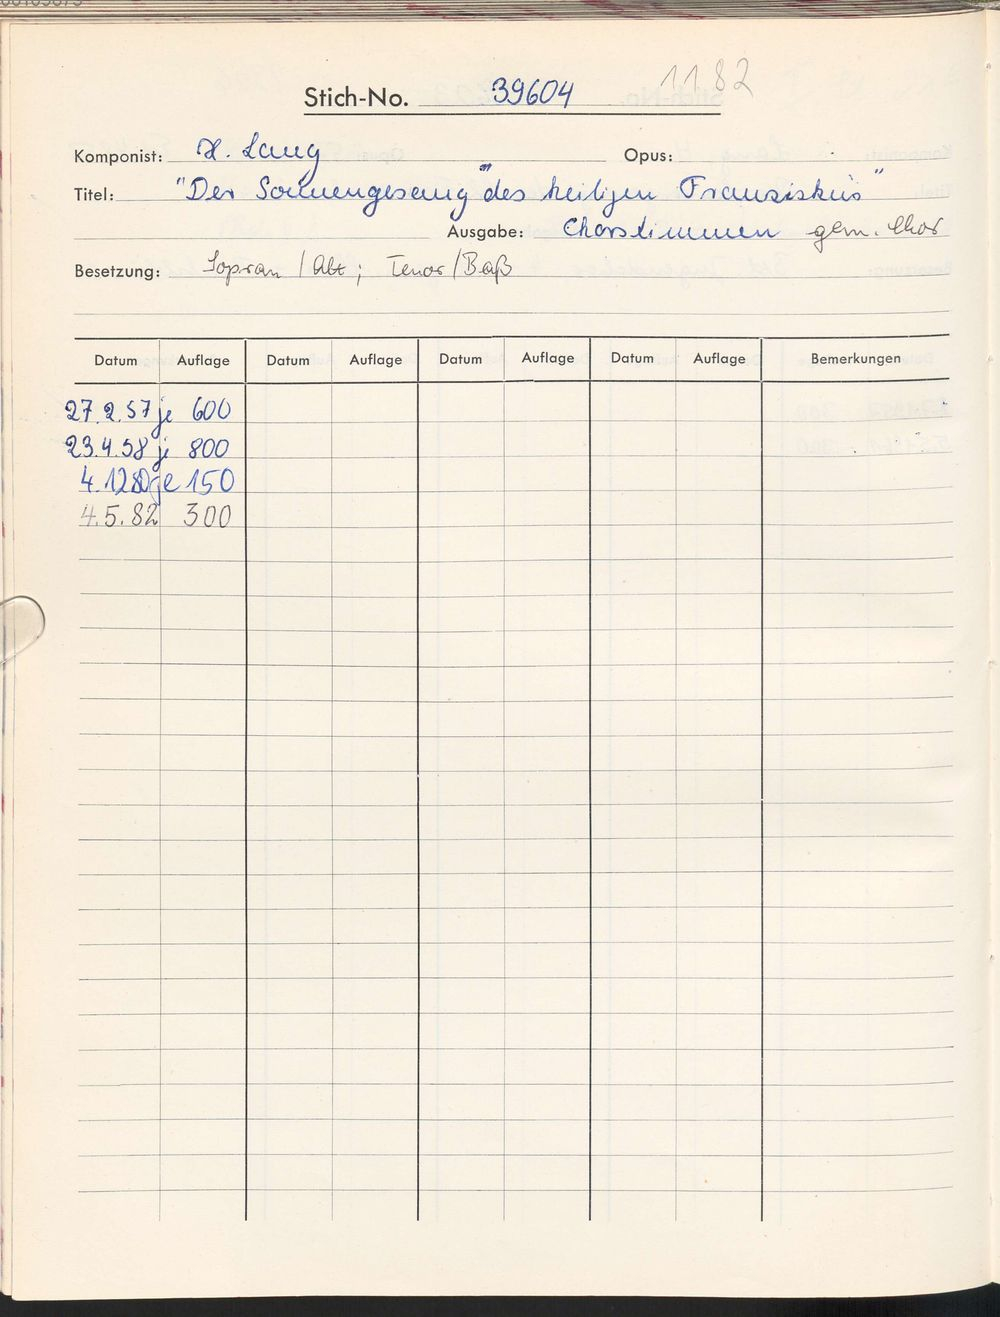 Stich-No. 39604 1182
Komponist: H. Lang Opus:
Titel: "Der Sonnengesang des heiligen Franziskus"
Ausgabe: Chorstimmen gem. Chor
Besetzung: Sopran / Alt ; Tenor / Baß
Datum Auflage Datum Auflage Datum Auflage Datum Auflage Bemerkungen
27.2.57 je 600
23.4.58 je 800
4.12.80 je 150
4.5.82 300